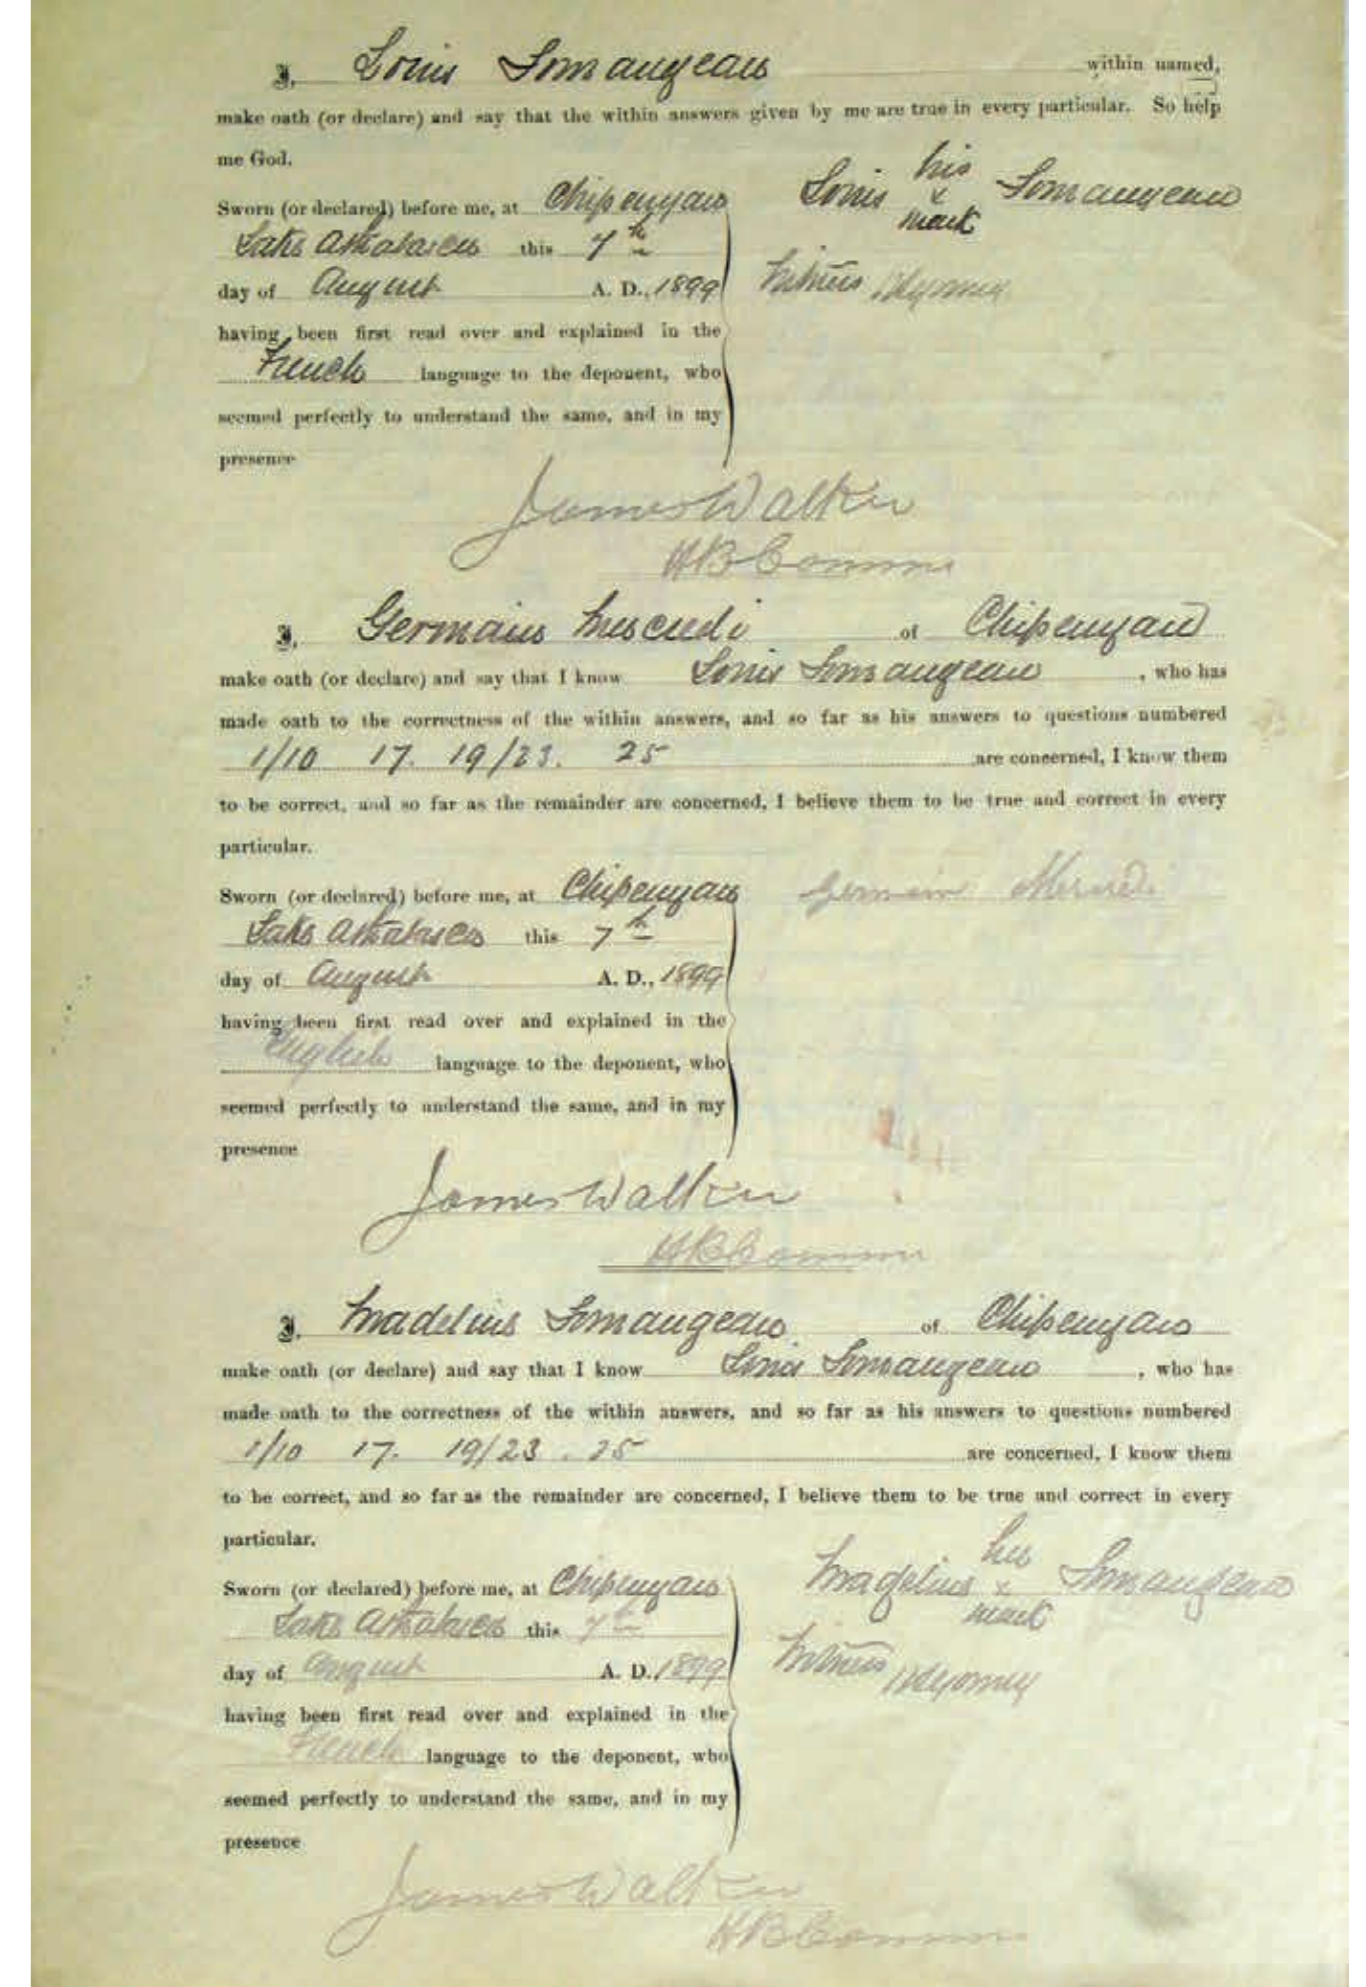 I, Louis Lomangeau within named,
make oath (or declare) and say that the within answers given by me are true in every particular. So help
me God.
Sworn (or declared) before me, at Chipenyan
Lake Athabasca this 7th
day of August A. D., 1899
having been first read over and explained in the
French language to the deponent, who
seemed perfectly to understand the same, and in my
presence
his
Louis x
mark
Witness
James Walker
HB Comm
I, Germain of Chipenyan
make oath (or declare) and say that I know Louis Lomangeau, who has
made oath to the correctness of the within answers, and so far as his answers to questions numbered
1/10 17. 19/23. 25 are concerned, I know them
to be correct, and so far as the remainder are concerned, I believe them to be true and correct in every
particular.
Sworn (or declared) before me, at Chipenyan
Lake Athabasca this 7th
day of August A. D., 1899
having been first read over and explained in the
English language to the deponent, who
seemed perfectly to understand the same, and in my
presence
Germain
James Walker
HB Comm
I, Madeline Lomangeau of Chipenyan
make oath (or declare) and say that I know Louis Lomangeau, who has
made oath to the correctness of the within answers, and so far as his answers to questions numbered
1/10 17. 19/23. 25 are concerned, I know them
to be correct, and so far as the remainder are concerned, I believe them to be true and correct in every
particular.
Sworn (or declared) before me, at Chipenyan
Lake Athabasca this 7th
day of August A. D. 1899
having been first read over and explained in the
French language to the deponent, who
seemed perfectly to understand the same, and in my
presence
her
Madeline x Lomangeau
mark
Witness
James Walker
HB Comm